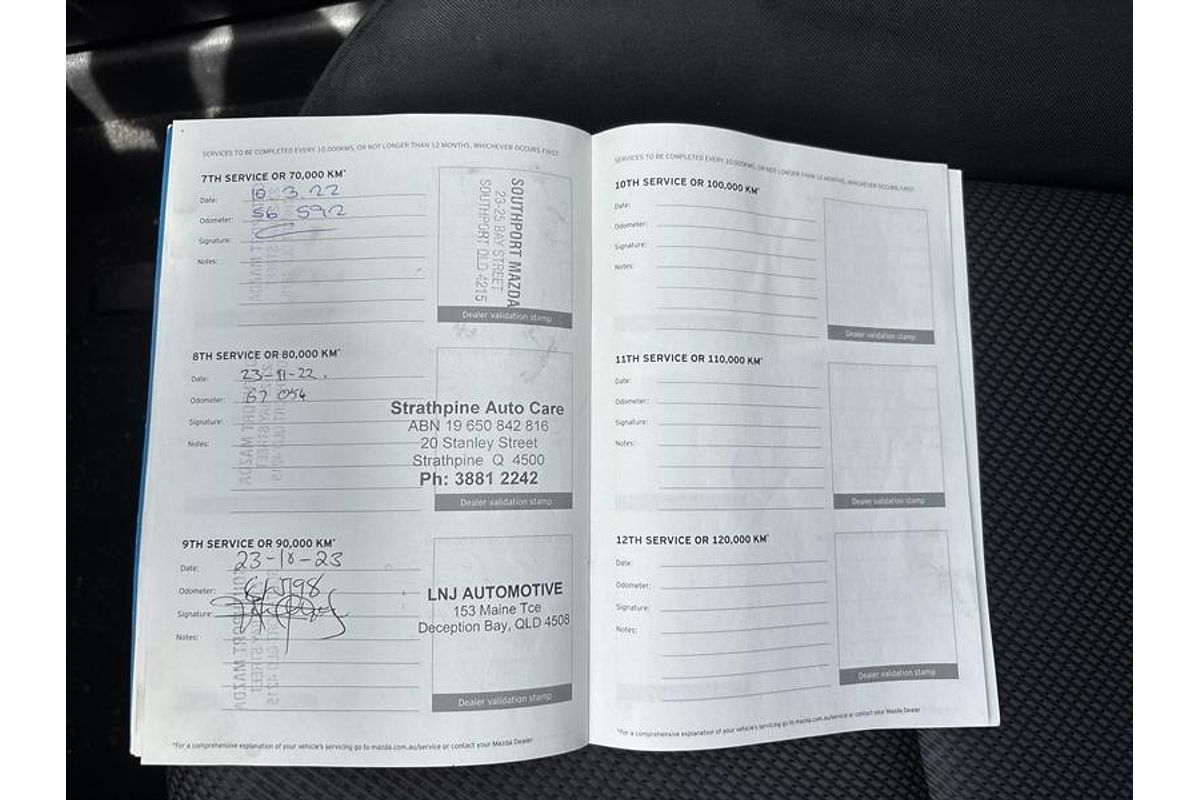 SERVICES TO BE COMPLETED EVERY 10,000KMS, OR NOT LONGER THAN 12 MONTHS, WHICHEVER OCCURS FIRST
7TH SERVICE OR 70,000 KM*
Date: 10.3.22
Odometer: 56 592
Signature:
Notes:
SOUTHPORT MAZDA
23-25 BAY STREET
SOUTHPORT QLD 4215
Dealer validation stamp
8TH SERVICE OR 80,000 KM*
Date: 23-11-22.
Odometer: 67 054
Signature:
Notes:
Strathpine Auto Care
ABN 19 650 842 816
20 Stanley Street
Strathpine Q 4500
Ph: 3881 2242
Dealer validation stamp
9TH SERVICE OR 90,000 KM*
Date: 23-10-23
Odometer:
Signature:
Notes:
LNJ AUTOMOTIVE
153 Maine Tce
Deception Bay, QLD 4508
Dealer validation stamp
*For a comprehensive explanation of your vehicle's servicing go to mazda.com.au/service or contact your Mazda Dealer
SERVICES TO BE COMPLETED EVERY 10,000KMS, OR NOT LONGER THAN 12 MONTHS, WHICHEVER OCCURS FIRST
10TH SERVICE OR 100,000 KM*
Date:
Odometer:
Signature:
Notes:
Dealer validation stamp
11TH SERVICE OR 110,000 KM*
Date:
Odometer:
Signature:
Notes:
Dealer validation stamp
12TH SERVICE OR 120,000 KM*
Date:
Odometer:
Signature:
Notes:
Dealer validation stamp
*For a comprehensive explanation of your vehicle's servicing go to mazda.com.au/service or contact your Mazda Dealer